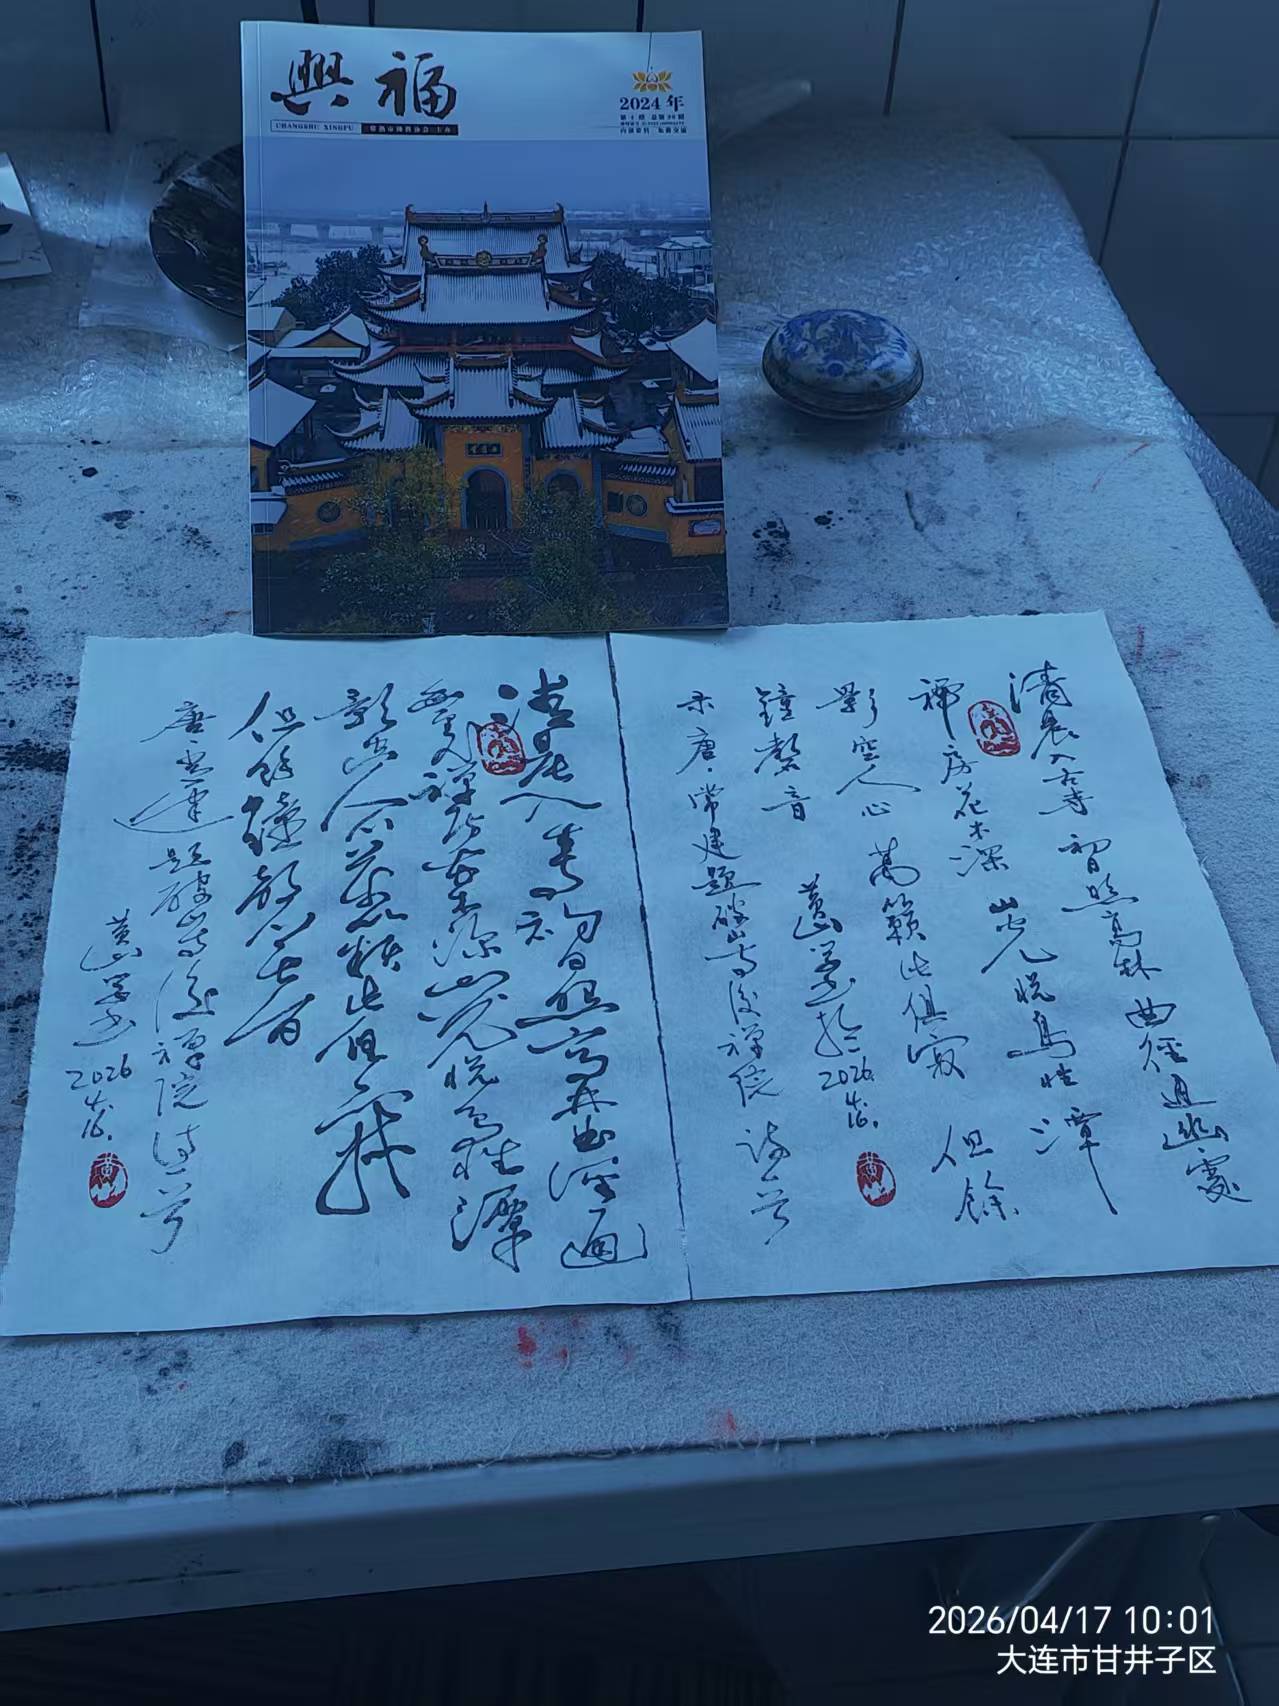 興福
CHANGSHU XINGFU
常熟市佛教协会 主办
2024年
内部资料 免费交流
清晨入古寺 初日照高林 曲径通幽處
禅房花木深 山光悦鳥性 潭
影空人心 萬籟此俱寂 但餘
鐘磬音
录唐·常建題破山寺後禅院 诗一首
2026.
4.
16.
清晨入古寺初日照高林曲径通
幽處禅房花木深山光悦鳥性潭
影空人心萬籟此俱寂
但餘鐘磬音
唐常建題破山寺後禅院诗一首
2026
4.
16.
2026/04/17 10:01
大连市甘井子区